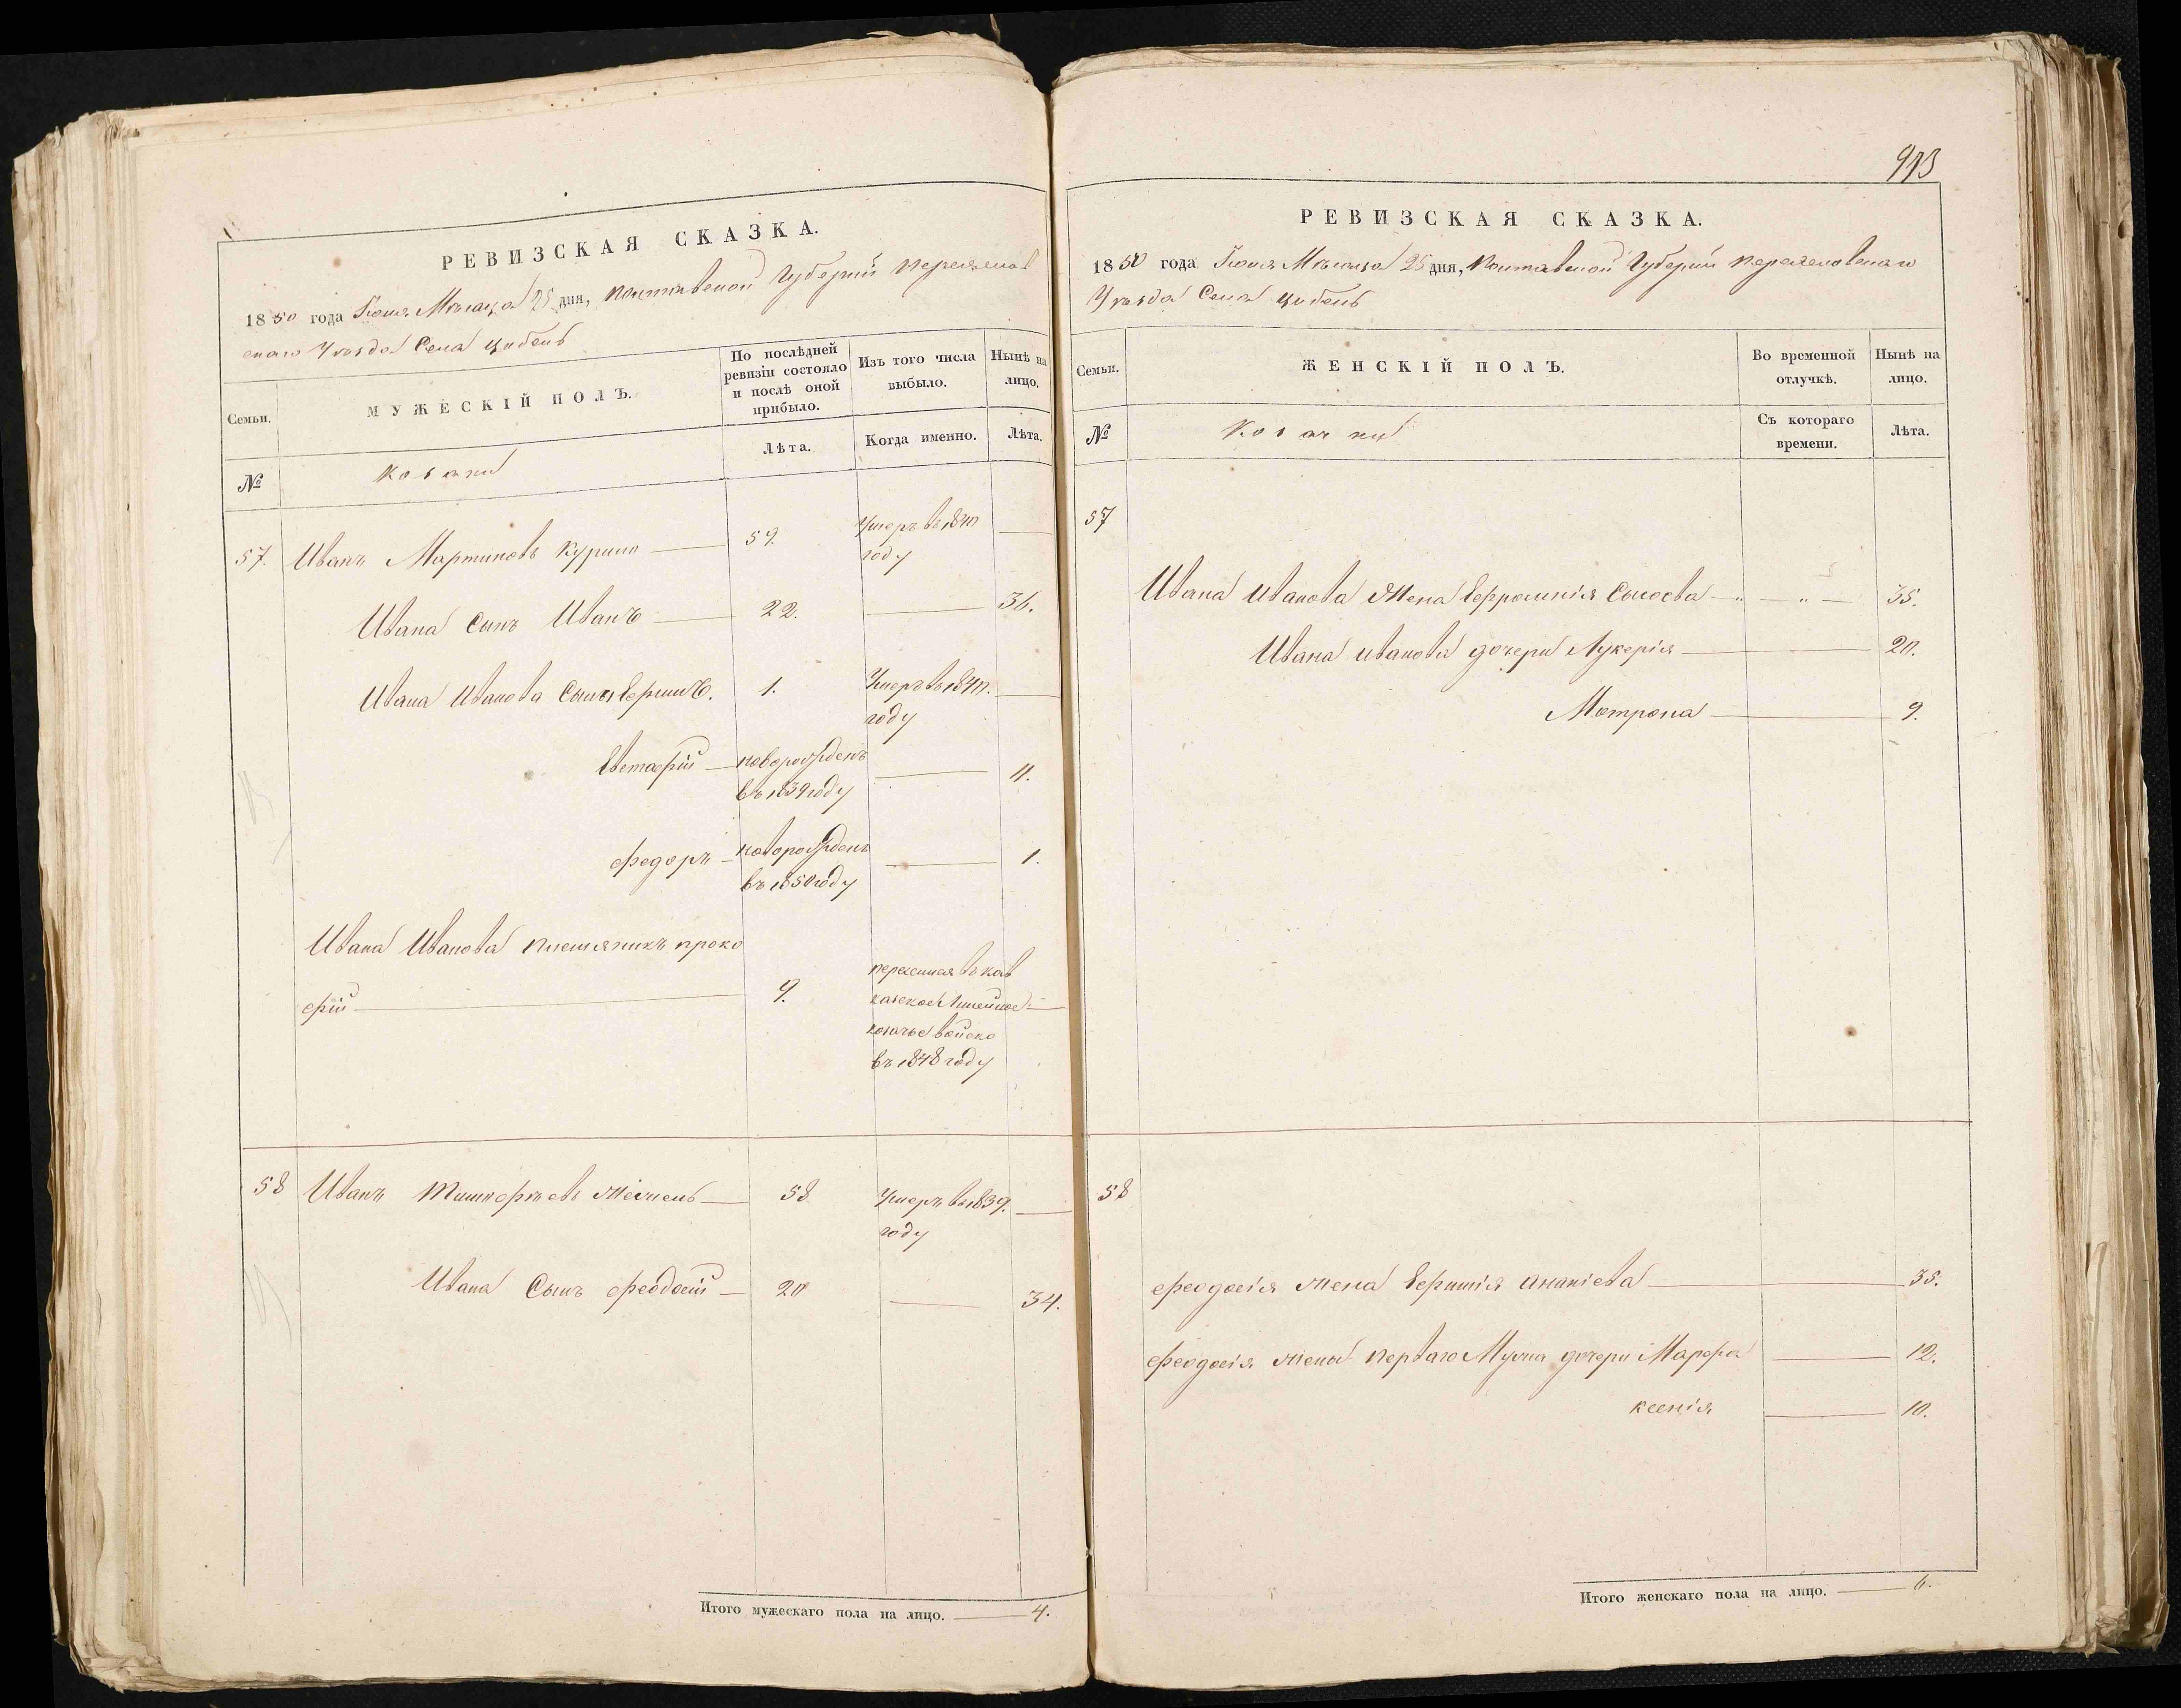 РЕВИЗСКАЯ СКАЗКА.
1850 года Июля Мѣсяца 25 дня, Полтавской Губерніи Переяслов
скаго Уѣзда Села Цибель
Семьи.
МУЖЕСКІЙ ПОЛЪ.
По послѣдней
ревизіи состояло
и послѣ оной
прибыло.
Изъ того числа
выбыло.
Нынѣ на
лицо.
№
Козаки
Лѣта.
Когда именно.
Лѣта.
57. Иванъ Мартиновъ Курило 59. Умеръ въ 1840
году
Ивана Сынъ Иванъ 22. 36.
Ивана Иванова Сынъ 1. Умеръ въ 1840.
году
Евстафій новорожденъ 11.
въ 1839 году
Федоръ новорожденъ 1.
въ 1850 году
Ивана Иванова племяникъ Проко
фій 9.
перечислен въ Кав
казское Линейное
козачье войско
въ 1848 году
58 Иванъ Тимофѣевъ 58 Умеръ въ 1839.
году
Ивана Сынъ Феодосій 20 34.
Итого мужескаго пола на лицо. 4.
913
РЕВИЗСКАЯ СКАЗКА.
1850 года Июля Мѣсяца 25 дня, Полтавской Губерніи Переясловскаго
Уѣзда Села Цибель
Семьи.
ЖЕНСКІЙ ПОЛЪ.
Во временной
отлучкѣ.
Нынѣ на
лицо.
№
Козачки
Съ котораго
времени.
Лѣта.
57
Ивана Иванова Жена Евфросинія Сысоева " " 35.
Ивана Иванова дочери Лукерія 20.
Мотрона 9.
58
Феодосія жена Ефимія Ананіева 35.
Феодосія жены перваго Мужа дочери Марфа 12.
Ксенія 10.
Итого женскаго пола на лицо. 6.